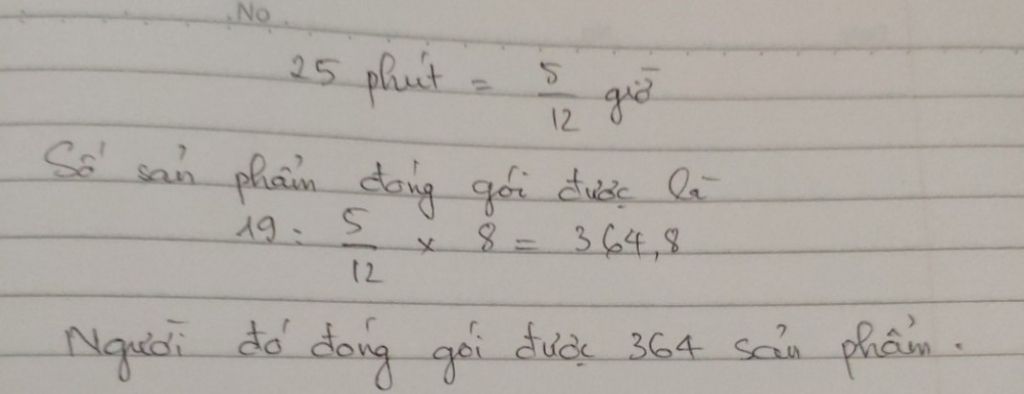 No.
25 phút = 5/12 giờ
Số sản phẩm đóng gói được là
19 : 5/12 × 8 = 364,8
Người đó đóng gói được 364 sản phẩm.